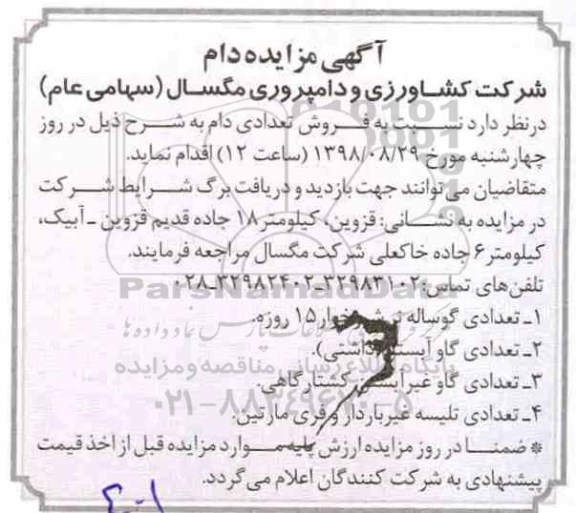 آگهی مزایده دام
شرکت کشاورزی و دامپروری مگسال (سهامی عام)
در نظر دارد نسبت به فروش تعدادی دام به شرح ذیل در روز
چهارشنبه مورخ ۱۳۹۸/۰۸/۲۹ (ساعت ۱۲) اقدام نماید.
متقاضیان می توانند جهت بازدید و دریافت برگ شرایط شرکت
در مزایده به نشانی: قزوین، کیلومتر ۱۸ جاده قدیم قزوین ـ آبیک،
کیلومتر ۶ جاده خاکعلی شرکت مگسال مراجعه فرمایند.
تلفن های تماس: ۳۲۹۸۳۱۰۲-۳۲۹۸۲۴۰۲-۰۲۸
ParsNamadData
۱ـ تعدادی گوساله نر شیرخوار ۱۵ روزه.
۲ـ تعدادی گاو آبستن (داشتی).
پایگاه اطلاع رسانی مناقصه و مزایده
۳ـ تعدادی گاو غیرآبستن کشتارگاهی.
۰۲۱-۸۸۳۴۹۶۷۰-۵
۴ـ تعدادی تلیسه غیرباردار و فری مارتین.
* ضمناً در روز مزایده ارزش پایه موارد مزایده قبل از اخذ قیمت
پیشنهادی به شرکت کنندگان اعلام می گردد.